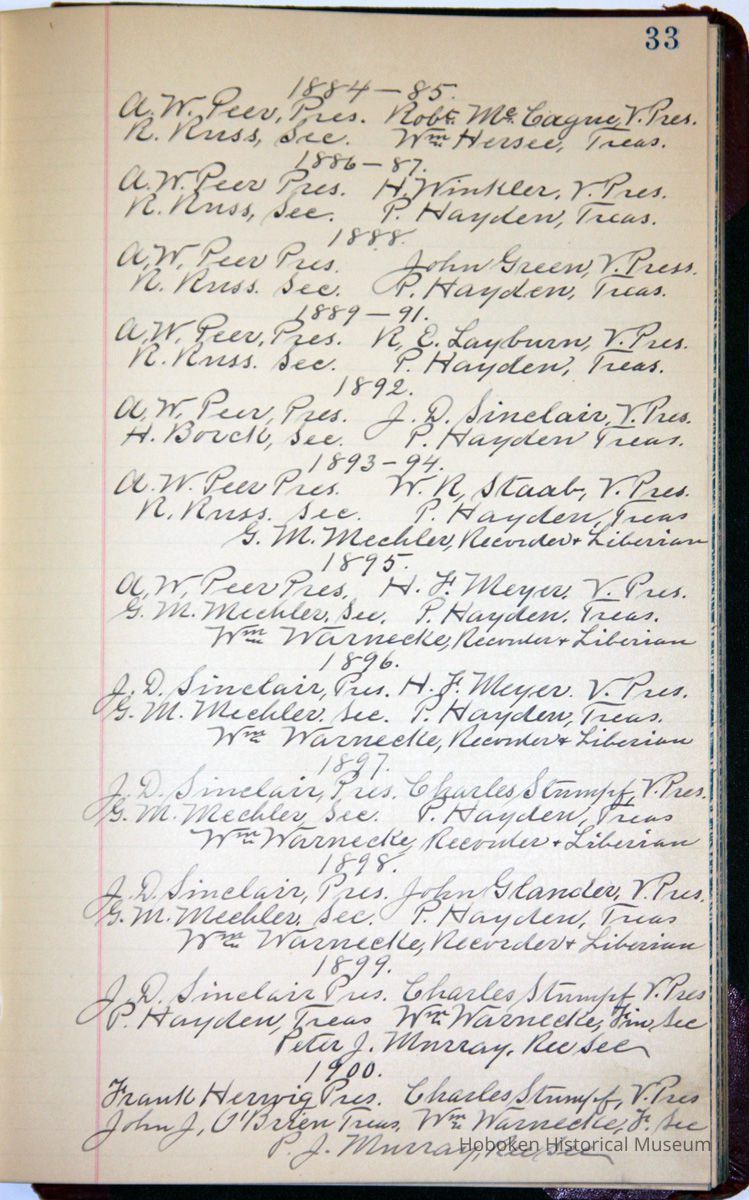 33
1884 – 85.
A. W. Peer, Pres. Robt. Mc. Cague, V. Pres.
R. Russ, Sec. Wm Hersee, Treas.
1886 – 87.
A. W. Peer Pres. H. Winkler, V. Pres.
R. Russ, Sec. P. Hayden, Treas.
1888.
A. W. Peer Pres. John Green, V. Press.
R. Russ. Sec. P. Hayden, Treas.
1889 – 91.
A. W. Peer, Pres. R. E. Layburn, V. Pres.
R. Russ. Sec. P. Hayden, Treas.
1892.
A. W. Peer, Pres. J. D. Sinclair, V. Pres.
H. Borck, Sec. P. Hayden Treas.
1893 – 94.
A. W. Peer Pres. W. R. Staab, V. Pres.
R. Russ. Sec. P. Hayden, Treas
G. M. Mechler, Recorder + Liberian
1895.
A. W. Peer Pres. H. F. Meyer. V. Pres.
G. M. Mechler, Sec. P. Hayden. Treas.
Wm Warnecke, Recorder + Liberian
1896.
J. D. Sinclair, Pres. H. F. Meyer. V. Pres.
G. M. Mechler. Sec. P. Hayden, Treas.
Wm Warnecke, Recorder + Liberian
1897.
J. D. Sinclair, Pres. Charles Stumpf, V. Pres.
G. M. Mechler, Sec. P. Hayden, Treas
Wm Warnecke, Recorder + Liberian
1898.
J. D. Sinclair, Pres. John Glander, V. Pres.
G. M. Mechler. Sec. P. Hayden, Treas
Wm Warnecke, Recorder + Liberian
1899.
J. D. Sinclair Pres. Charles Stumpf V. Pres
P. Hayden, Treas Wm Warnecke, Fin, Sec
Peter J. Murray, Rec Sec
1900.
Frank Herwig Pres. Charles Stumpf, V. Pres
John J. O'Brien Treas, Wm Warnecke, F. Sec
P. J. Murray, Rec Sec
Hoboken Historical Museum